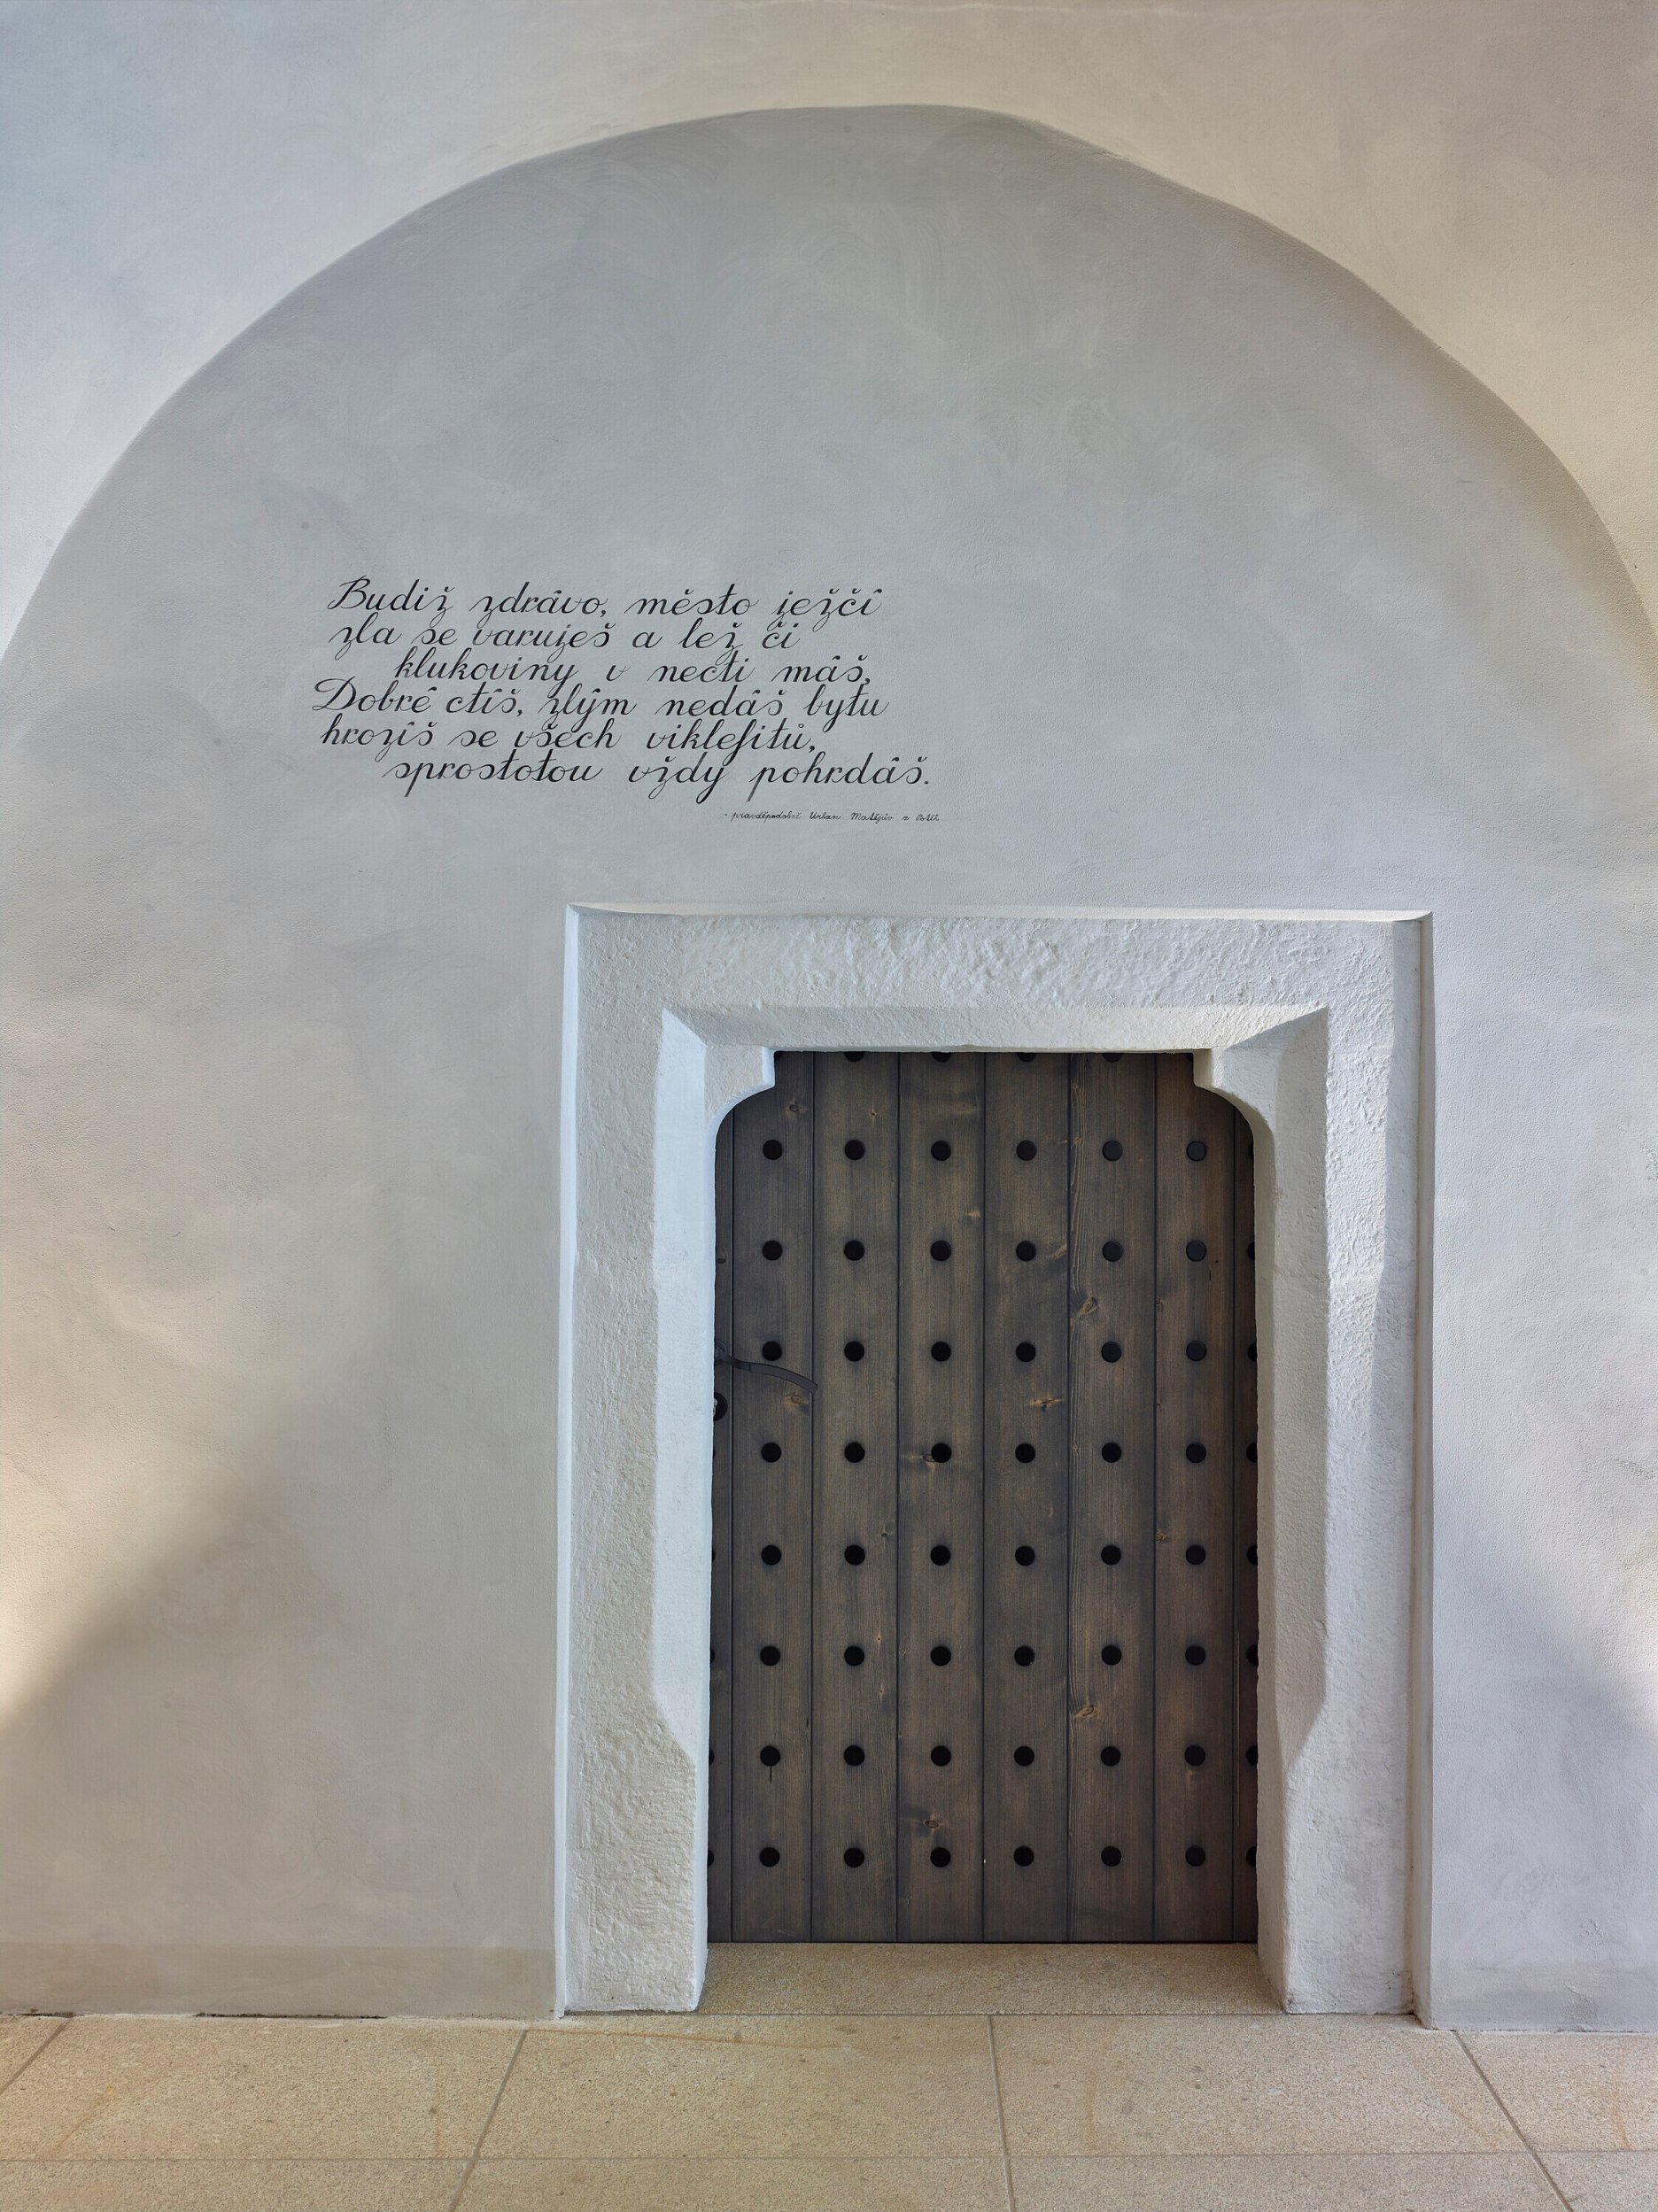 Budiž zdrávo, město ježčí
zla se varuješ a lež či
klukoviny v necti máš,
Dobré ctíš, zlým nedáš bytu
hrozíš se všech viklefitů,
sprostotou vždy pohrdáš.
- pravděpodobně Urban Matějův z